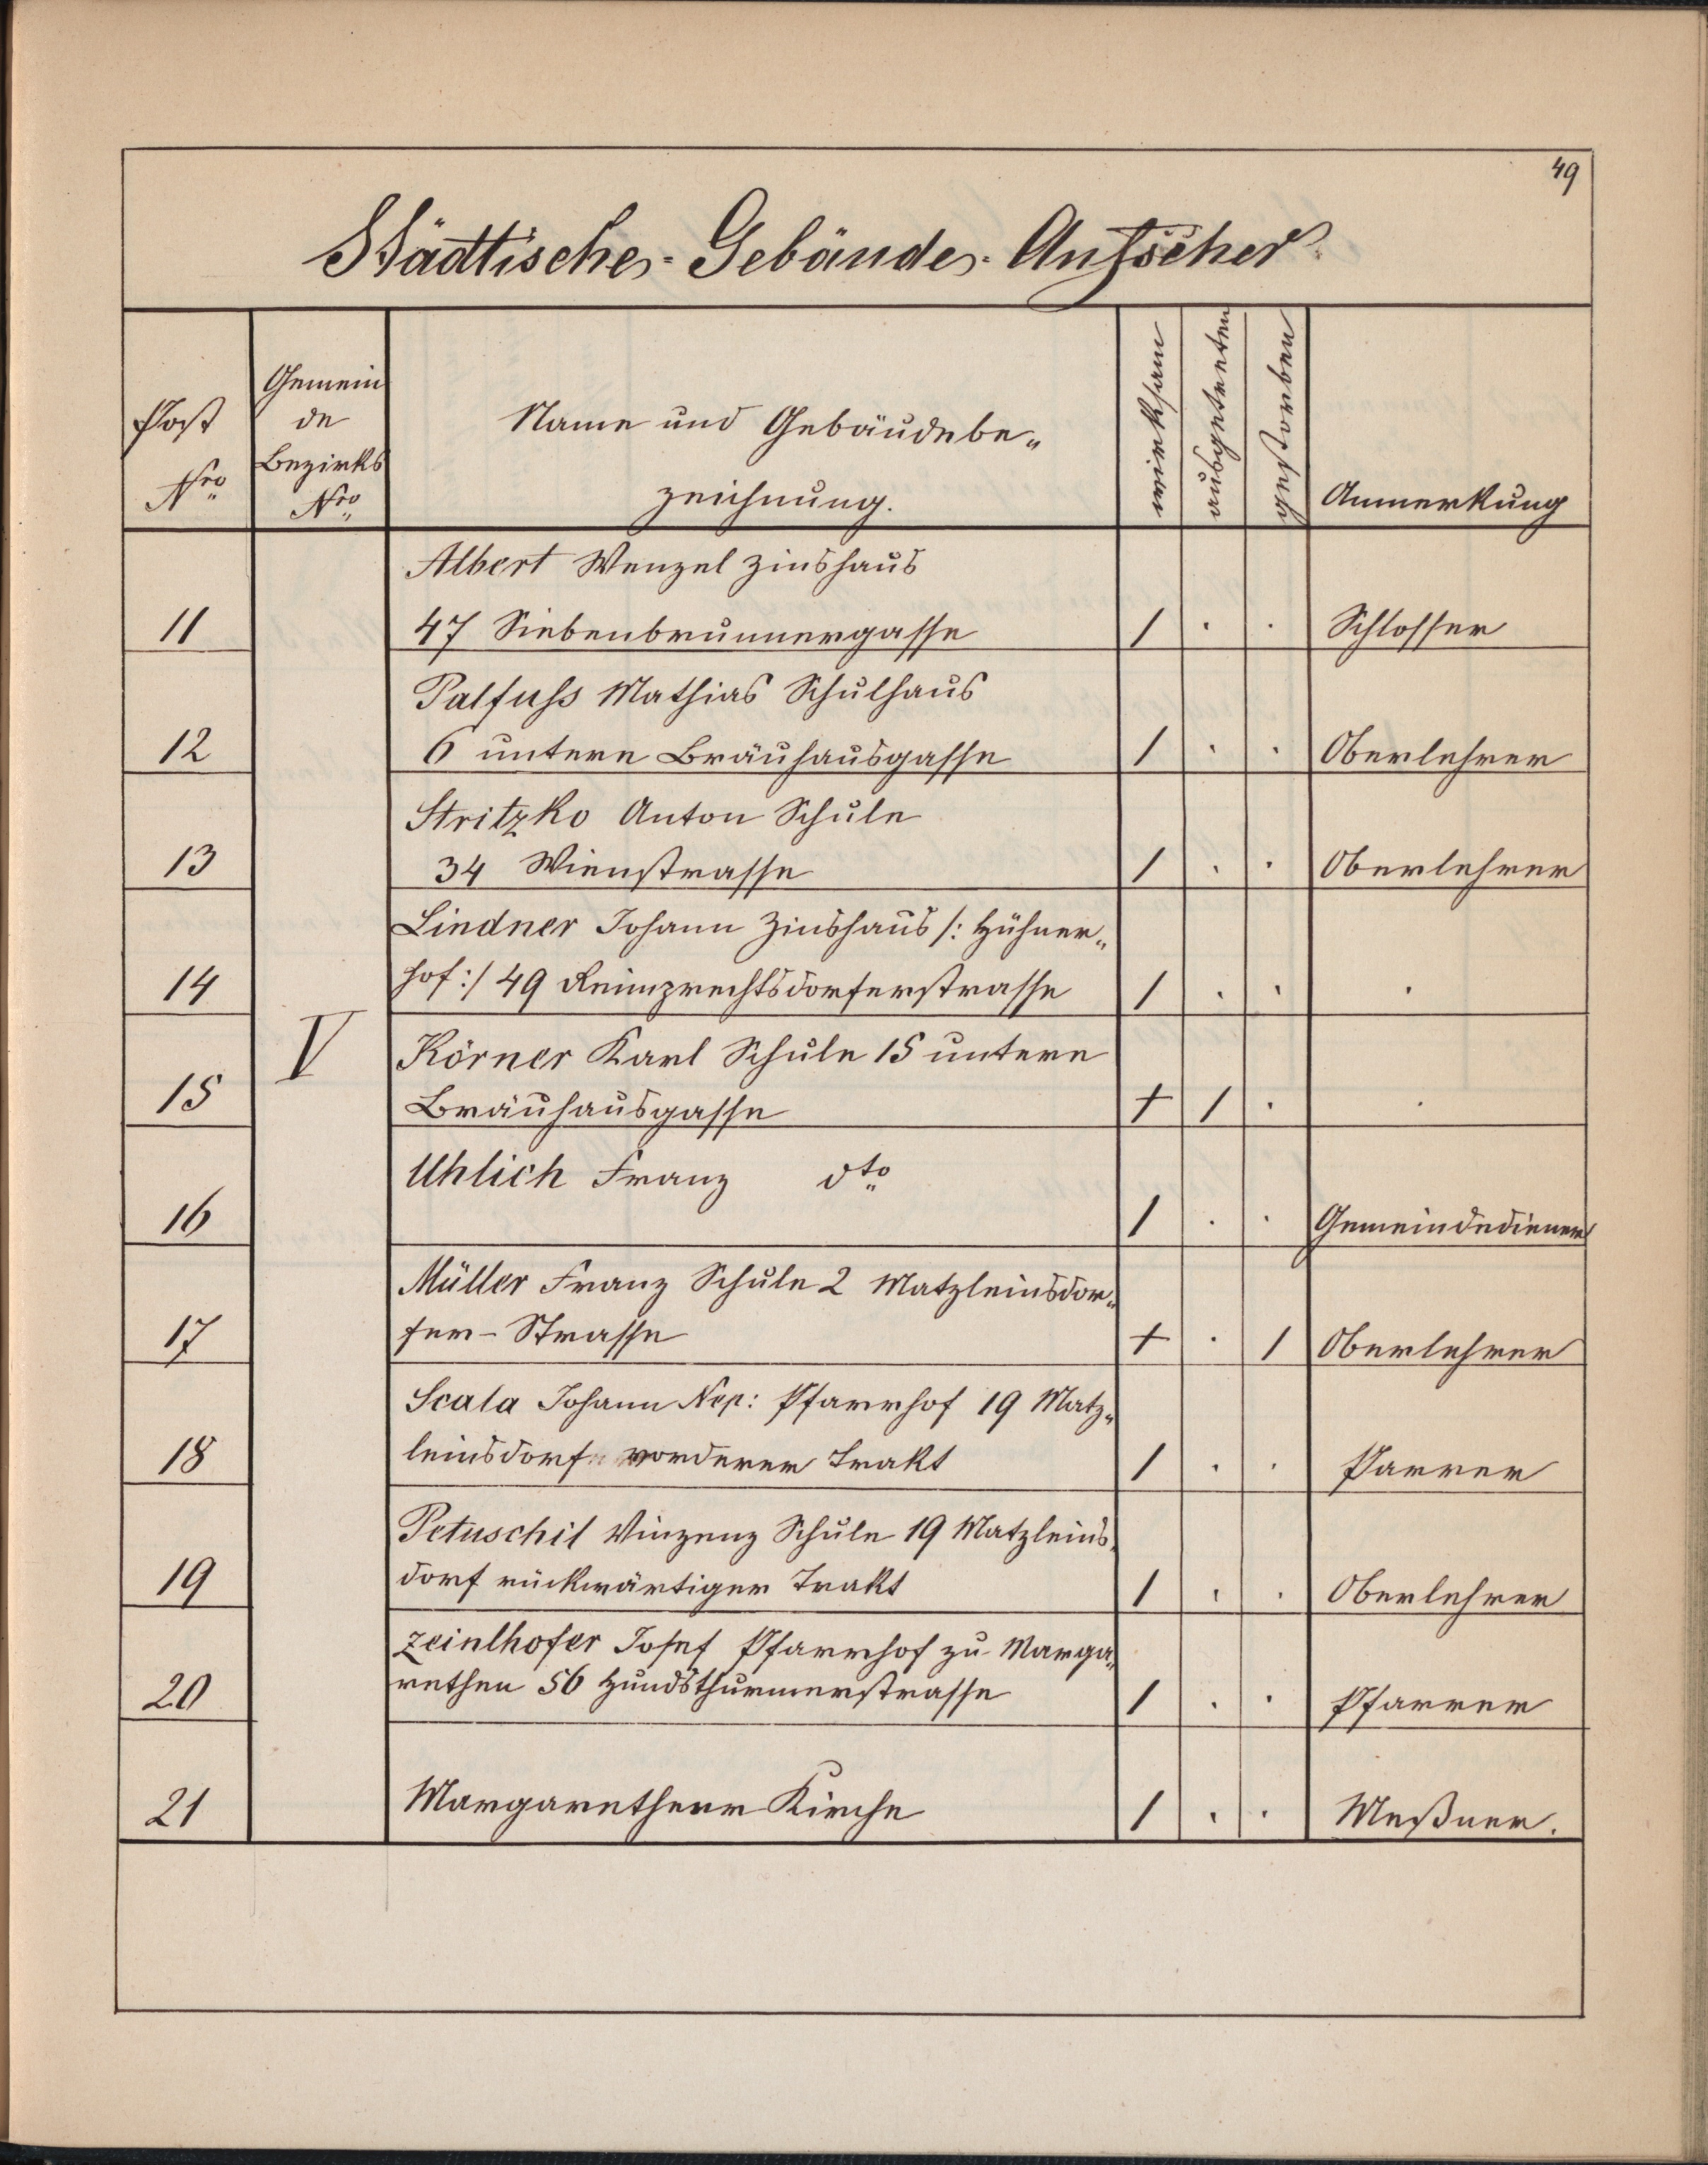 49
Städtische-Gebäude-Aufseher
Post Nro
Gemein
de
Bezirks
Nro
Name und Gebäudebe„
zeichnung.
wirksam
ausgetreten
gestorben
Anmerkung
Albert Wenzel Zinshaus
11 47 Siebenbrunnergasse 1 . . Schlosser
Palfuss Mathias Schulhaus
12 6 untere Bräuhausgasse 1 . . Oberlehrer
Stritzko Anton Schule
13 34 Wienstrasse 1 . . Oberlehrer
Lindner Johann Zinshaus /: Hühner„
14 hof :/ 49 Reinprechtsdorferstrasse 1 . . .
V
Körner Karl Schule 15 untere
15 Bräuhausgasse + 1 . .
Uhlich Franz dto
16 1 . . Gemeindediener
Müller Franz Schule 2 Matzleinsdor„
17 fer-Strasse + . 1 Oberlehrer
Scala Johann Nep: Pfarrhof 19 Matz„
18 leinsdorf vorderer Trakt 1 . . Parrer
Petuschil Vinzenz Schule 19 Matzleins„
19 dorf rückwärtiger Trakt 1 . . Oberlehrer
Zeinlhofer Josef Pfarrhof zu Marga„
20 rethen 56 Hundsthurmerstrasse 1 . . Pfarrer
21 Margarethner Kirche 1 . . Meßner.